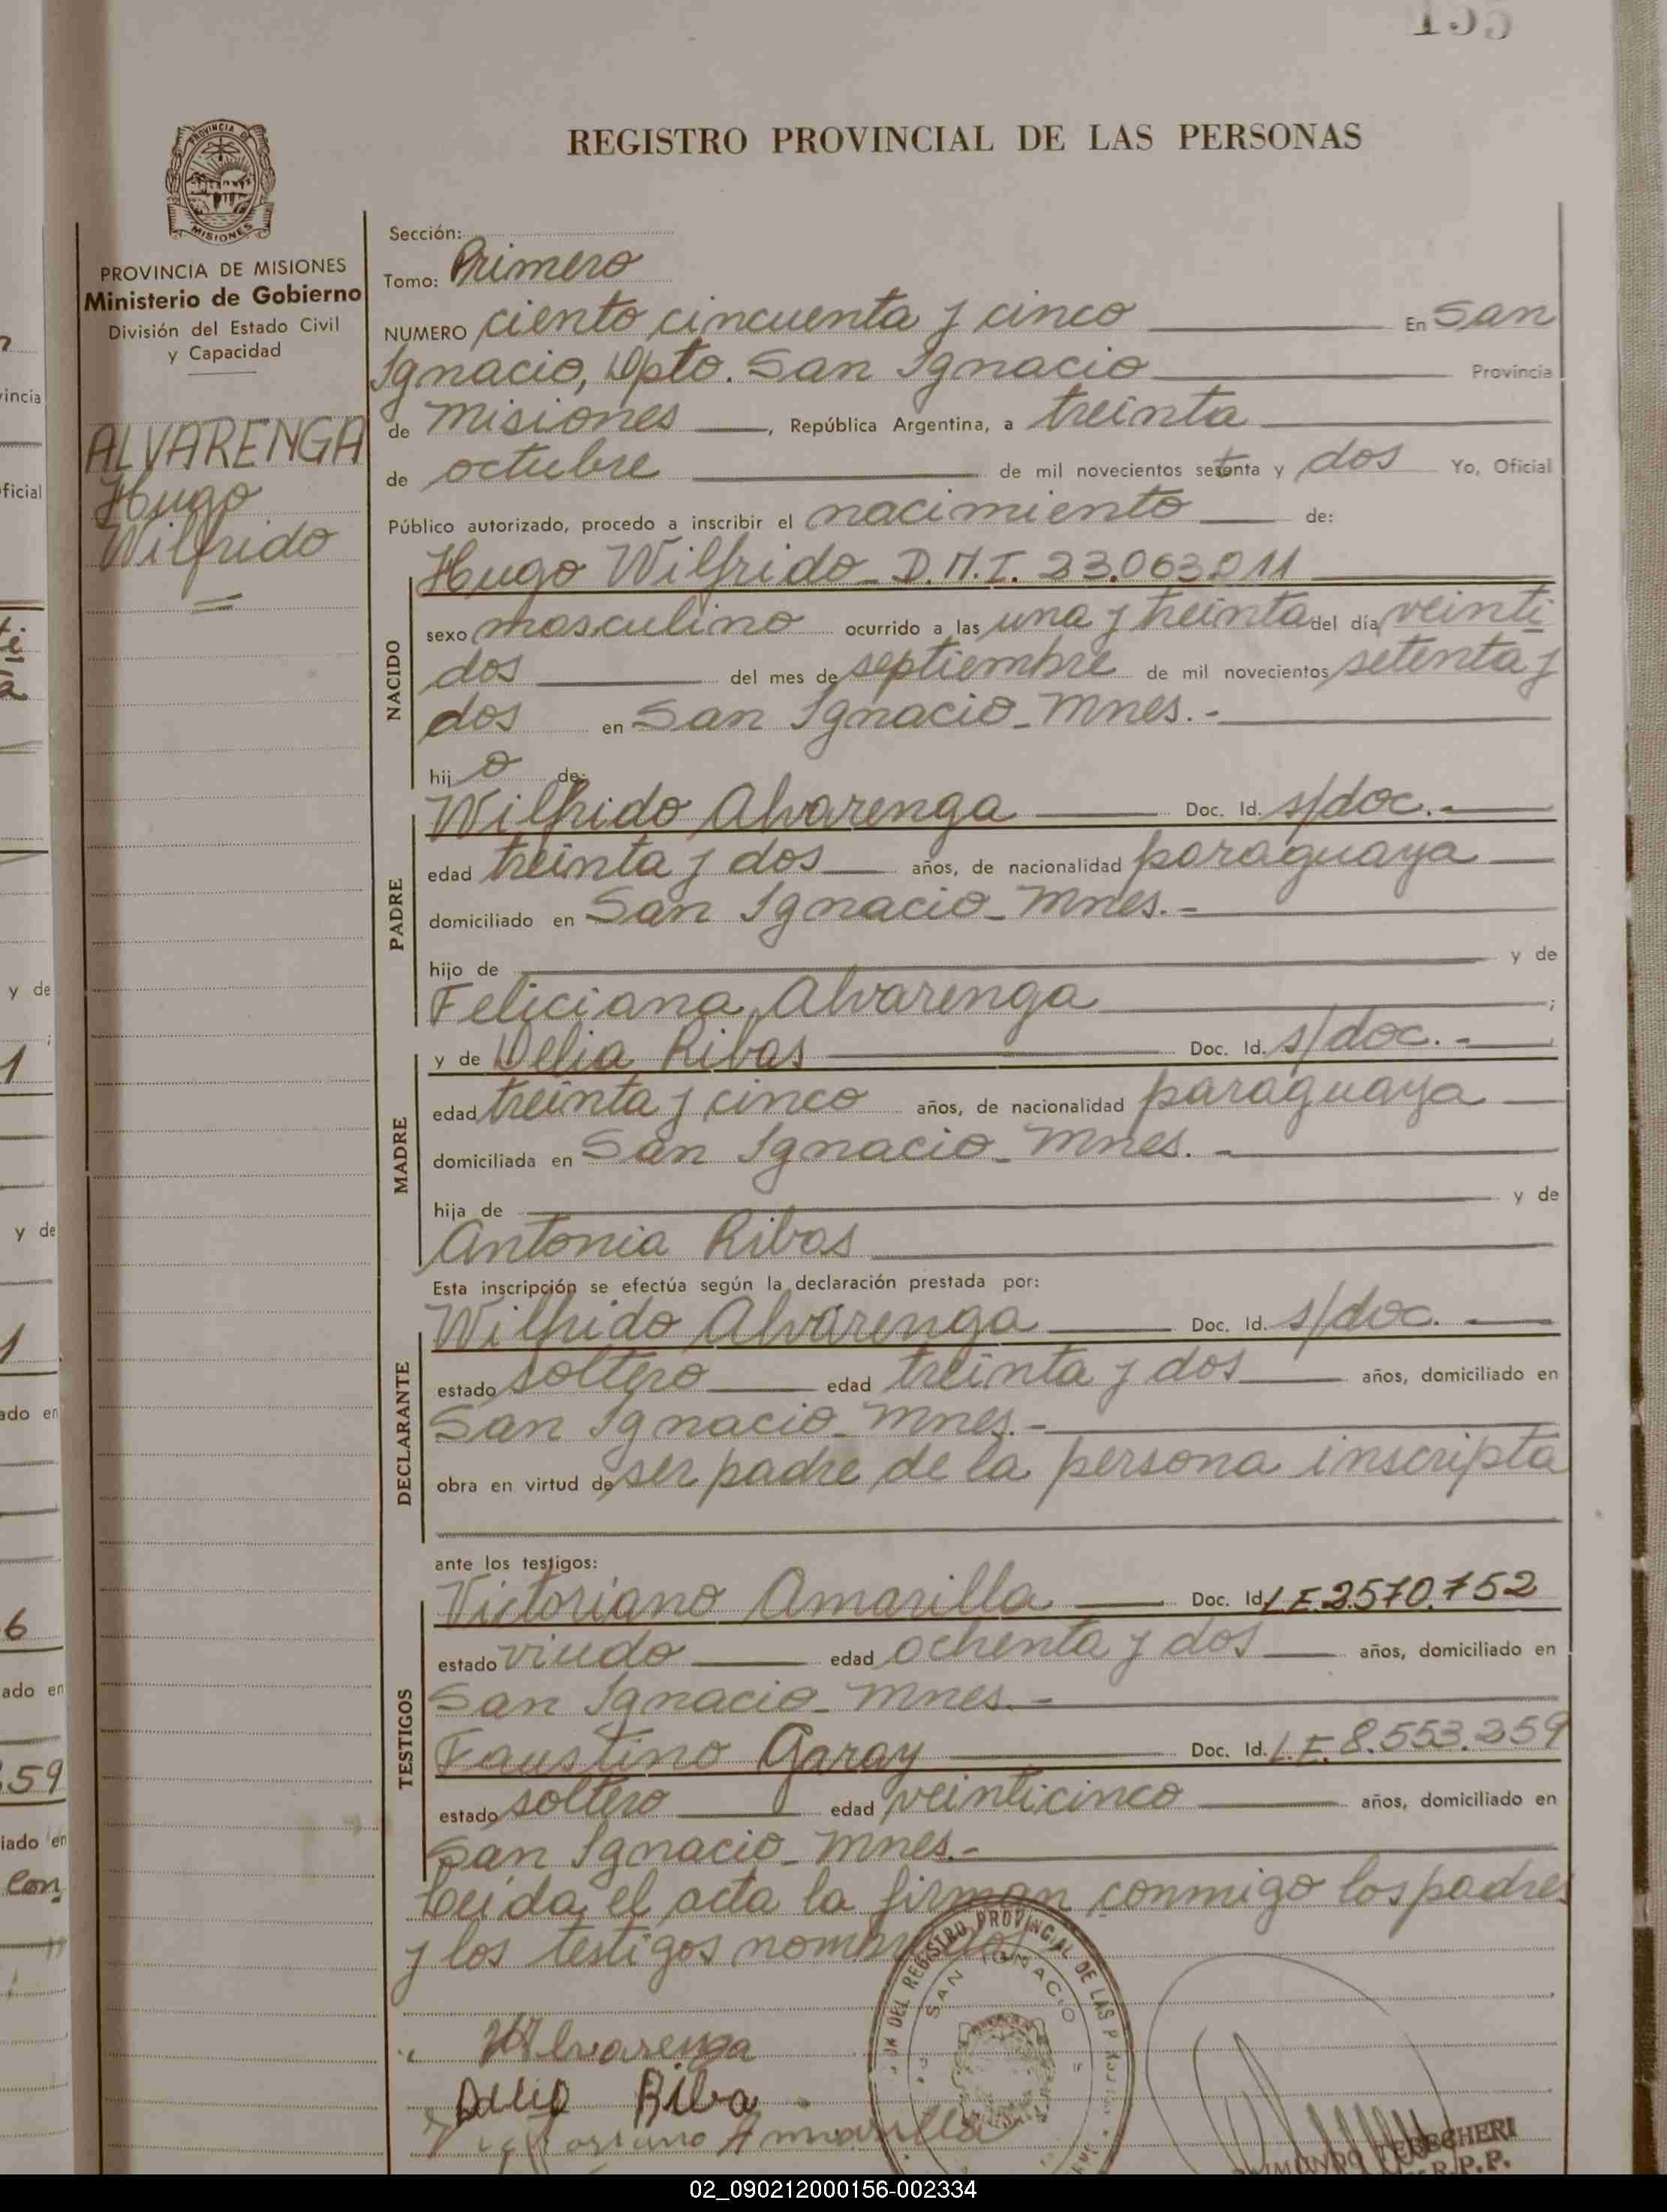 155
REGISTRO PROVINCIAL DE LAS PERSONAS
PROVINCIA DE MISIONES
PROVINCIA DE MISIONES
Ministerio de Gobierno
División del Estado Civil
y Capacidad
ALVARENGA
Hugo
Wilfrido
Sección:
Tomo: Primero
NUMERO ciento cincuenta y cinco En San
Ignacio, Dpto. San Ignacio Provincia
de Misiones, República Argentina, a treinta
de octubre de mil novecientos setenta y dos Yo, Oficial
Público autorizado, procedo a inscribir el nacimiento de:
NACIDO
Hugo Wilfrido - D.N.I. 23.063.011
sexo masculino ocurrido a las una y treinta del día veinti
dos del mes de septiembre de mil novecientos setenta y
dos en San Ignacio - Mnes.-
hijo de:
PADRE
Wilfrido Alvarenga Doc. Id. s/doc.-
edad treinta y dos años, de nacionalidad paraguaya
domiciliado en San Ignacio - Mnes.-
hijo de y de
Feliciana Alvarenga ;
MADRE
y de Delia Ribas Doc. Id. s/doc.-
edad treinta y cinco años, de nacionalidad paraguaya
domiciliada en San Ignacio - Mnes.-
hija de y de
Antonia Ribas
Esta inscripción se efectúa según la declaración prestada por:
DECLARANTE
Wilfrido Alvarenga Doc. Id. s/doc.
estado soltero edad treinta y dos años, domiciliado en
San Ignacio - Mnes.-
obra en virtud de ser padre de la persona inscripta
ante los testigos:
TESTIGOS
Victoriano Amarilla Doc. Id. L.E. 2.570.752
estado viudo edad ochenta y dos años, domiciliado en
San Ignacio - Mnes.-
Faustino Garay Doc. Id. L.E. 8.553.259
estado soltero edad veinticinco años, domiciliado en
San Ignacio - Mnes.-
Leida el acta la firman conmigo los padres
y los testigos nombrados
DEL REGISTRO PROVINCIAL DE LAS P
SAN IGNACIO
WAlvarenga
Delia Riba
Victoriano Amarilla
R.P.P.
02_090212000156-002334